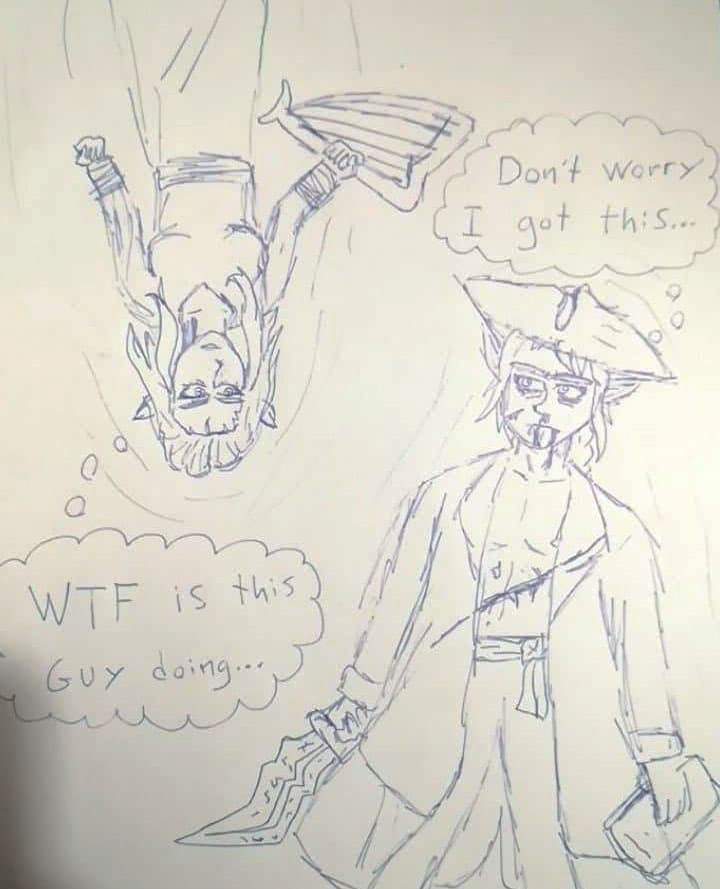 Don't worry
I got this...
WTF is this
Guy doing...